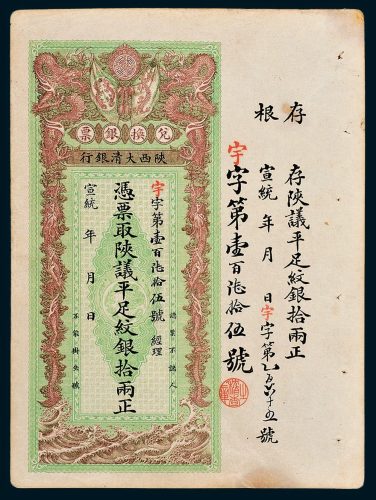 存根
存陝議平足紋銀拾兩正
宣統 年 月 日宇字第
號
宇字第壹百柒拾伍號
兌換銀票
陝西大清銀行
認票不認人
宇字第壹百柒拾伍號 經理
憑票取陝議平足紋銀拾兩正
宣統 年 月 日
不能掛失號